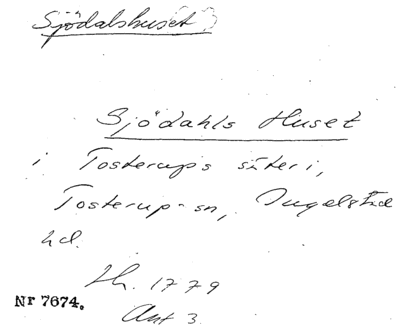 Sjödalshuset
Sjödahls Huset
i Tosterups säteri,
Tosterup-sn, Ingelstad
hd.
Lh. 1779
Akt 3.
Nr 7674.